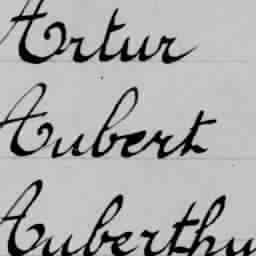 Artur
Aubert
Auberthu